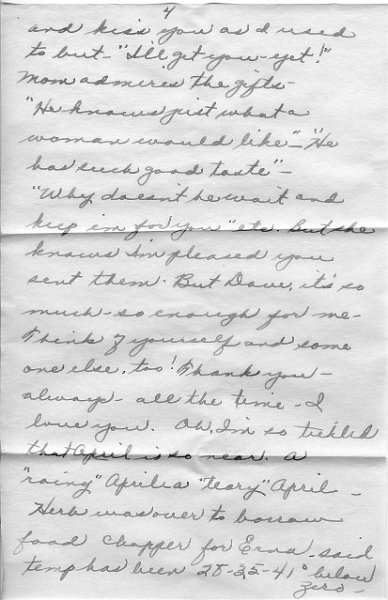 4
and kiss you as I used
to but - "I'll get you - yet!"
Mom admires the gifts -
"He knows just what a
woman would like" - "He
has such good taste" -
"Why doesn't he wait and
keep em for you" etc. But she
knows I'm pleased you
sent them. But Dave, it's so
much - so enough for me -
Think of yourself and some
one else, too! Thank you -
always - all the time - I
love you. Oh, I'm so tickled
that April is so near. A
"rainy" April a "teary" April -
Herb was over to borrow
food chopper for Erna - said
temp has been 28-35-41° below
zero -